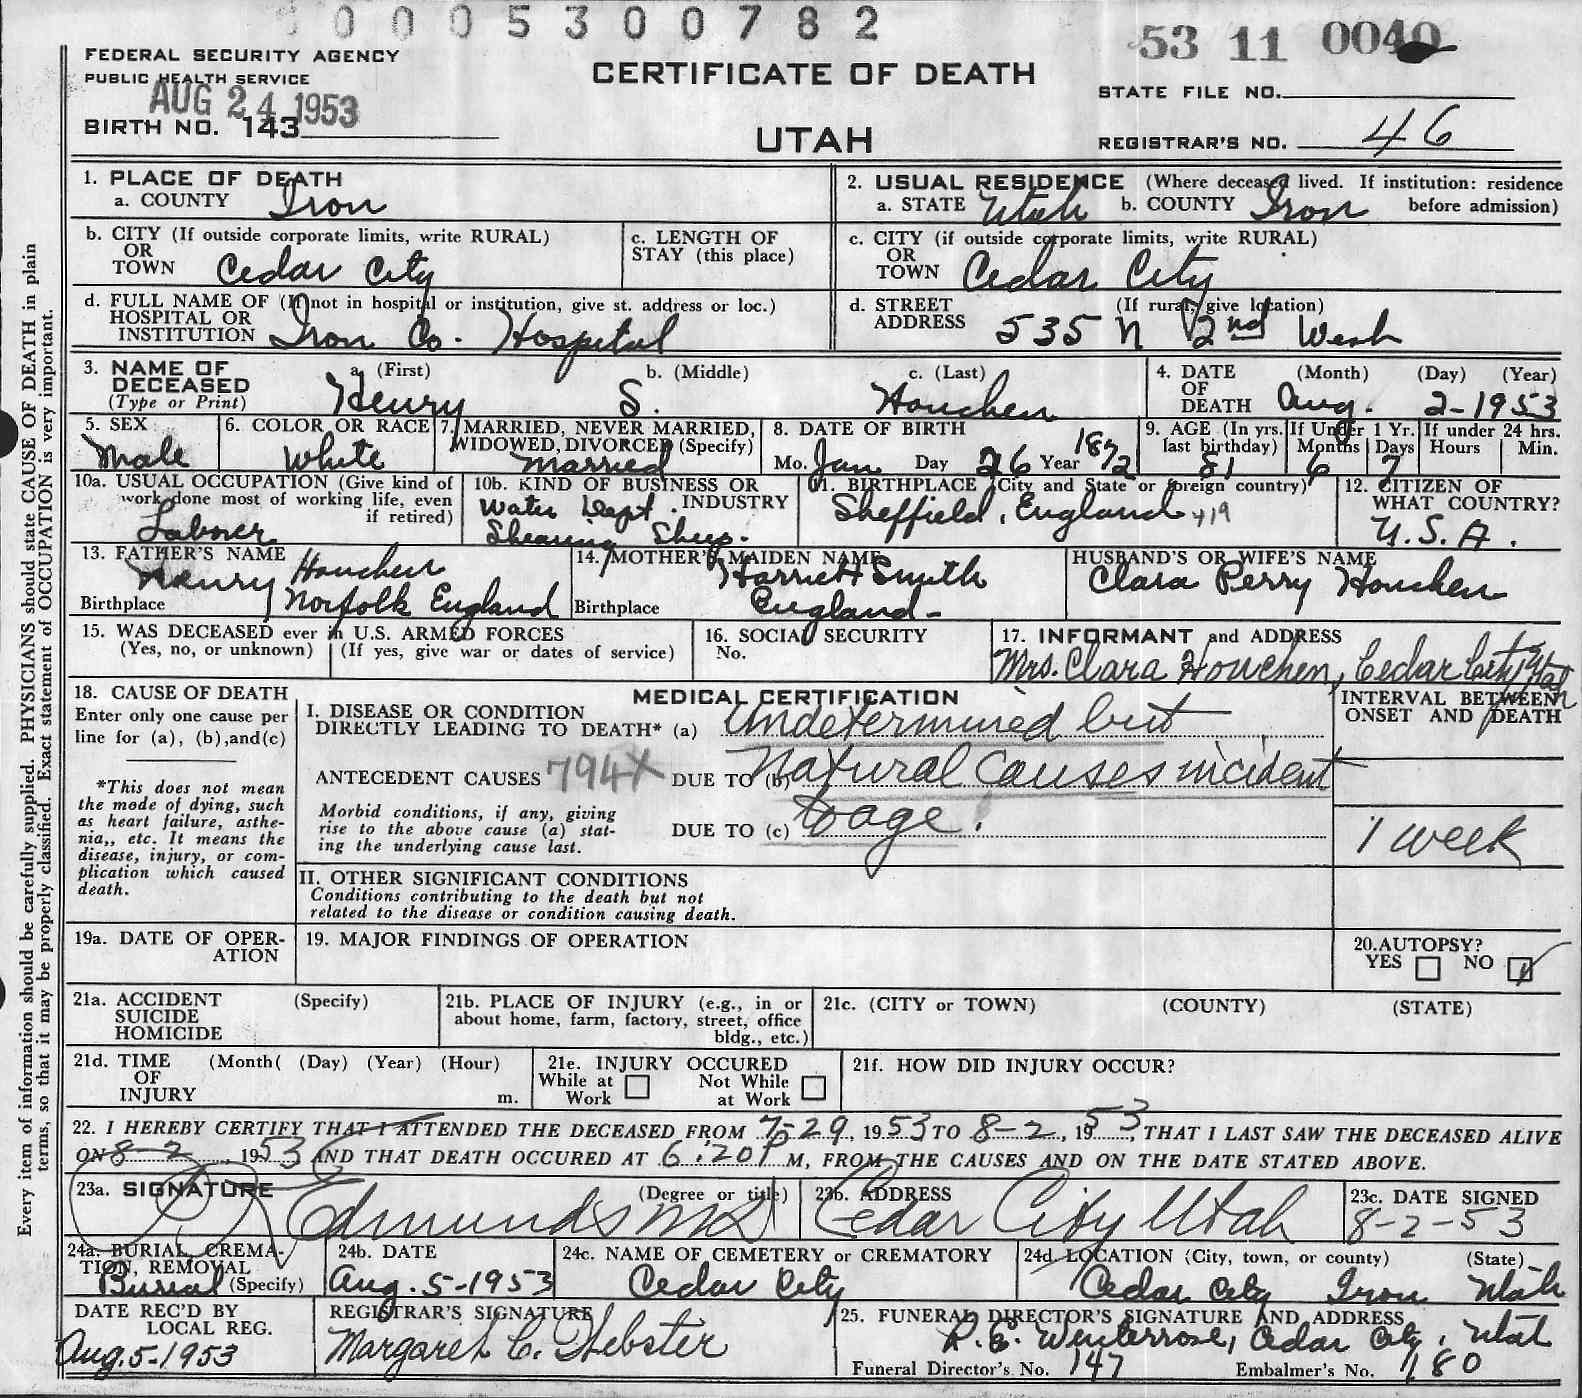 0005300782
53 11 0040
FEDERAL SECURITY AGENCY
PUBLIC HEALTH SERVICE
AUG 24 1953
BIRTH NO. 143
CERTIFICATE OF DEATH
UTAH
STATE FILE NO.
REGISTRAR'S NO. 46
1. PLACE OF DEATH
a. COUNTY Iron
2. USUAL RESIDENCE (Where deceased lived. If institution: residence
a. STATE Utah b. COUNTY Iron before admission)
b. CITY (If outside corporate limits, write RURAL)
OR
TOWN Cedar City
c. LENGTH OF
STAY (this place)
c. CITY (if outside corporate limits, write RURAL)
OR
TOWN Cedar City
d. FULL NAME OF (If not in hospital or institution, give st. address or loc.)
HOSPITAL OR
INSTITUTION Iron Co. Hospital
d. STREET (If rural, give location)
ADDRESS 535 N 2nd West
3. NAME OF
DECEASED
(Type or Print)
a. (First) Henry
b. (Middle) S.
c. (Last) Houchen
4. DATE (Month) (Day) (Year)
OF
DEATH Aug. 2-1953
5. SEX
Male
6. COLOR OR RACE
White
7. MARRIED, NEVER MARRIED,
WIDOWED, DIVORCED (Specify)
Married
8. DATE OF BIRTH
Mo. Jan Day 26 Year 1872
9. AGE (In yrs.
last birthday) 81
If Under 1 Yr.
Months 6 Days 7
If under 24 hrs.
Hours Min.
10a. USUAL OCCUPATION (Give kind of
work done most of working life, even
if retired)
Laborer
10b. KIND OF BUSINESS OR
INDUSTRY
Water Dept.
Shearing Sheep.
11. BIRTHPLACE (City and State or foreign country)
Sheffield, England 419
12. CITIZEN OF
WHAT COUNTRY?
U.S.A.
13. FATHER'S NAME
Henry Houchen
Birthplace Norfolk England
14. MOTHER'S MAIDEN NAME
Harriett Smith
Birthplace England-
HUSBAND'S OR WIFE'S NAME
Clara Perry Houchen
15. WAS DECEASED ever in U.S. ARMED FORCES
(Yes, no, or unknown) (If yes, give war or dates of service)
16. SOCIAL SECURITY
No.
17. INFORMANT and ADDRESS
Mrs. Clara Houchen, Cedar City, Utah
18. CAUSE OF DEATH
Enter only one cause per
line for (a), (b),and(c)
*This does not mean
the mode of dying, such
as heart failure, asthe-
nia,, etc. It means the
disease, injury, or com-
plication which caused
death.
MEDICAL CERTIFICATION
I. DISEASE OR CONDITION
DIRECTLY LEADING TO DEATH* (a) Undetermined but
ANTECEDENT CAUSES 794X DUE TO (b) Natural Causes incident
Morbid conditions, if any, giving
rise to the above cause (a) stat-
ing the underlying cause last.
DUE TO (c) to age.
INTERVAL BETWEEN
ONSET AND DEATH
1 week
II. OTHER SIGNIFICANT CONDITIONS
Conditions contributing to the death but not
related to the disease or condition causing death.
19a. DATE OF OPER-
ATION
19. MAJOR FINDINGS OF OPERATION
20.AUTOPSY?
YES NO
21a. ACCIDENT (Specify)
SUICIDE
HOMICIDE
21b. PLACE OF INJURY (e.g., in or
about home, farm, factory, street, office
bldg., etc.)
21c. (CITY or TOWN) (COUNTY) (STATE)
21d. TIME (Month( (Day) (Year) (Hour)
OF
INJURY m.
21e. INJURY OCCURED
While at Work Not While at Work
21f. HOW DID INJURY OCCUR?
22. I HEREBY CERTIFY THAT I ATTENDED THE DECEASED FROM 7-29, 1953 TO 8-2, 1953, THAT I LAST SAW THE DECEASED ALIVE
ON 8-2 1953 AND THAT DEATH OCCURED AT 6:20P M, FROM THE CAUSES AND ON THE DATE STATED ABOVE.
23a. SIGNATURE (Degree or title)
Edmunds MD
23b. ADDRESS
Cedar City Utah
23c. DATE SIGNED
8-2-53
24a. BURIAL, CREMA-
TION, REMOVAL
Burial (Specify)
24b. DATE
Aug. 5-1953
24c. NAME OF CEMETERY OR CREMATORY
Cedar City
24d LOCATION (City, town, or county) (State)
Cedar City Iron Utah
DATE REC'D BY
LOCAL REG.
Aug. 5-1953
REGISTRAR'S SIGNATURE
Margaret C. Webster
25. FUNERAL DIRECTOR'S SIGNATURE AND ADDRESS
R.E. Winterrose, Cedar City, Utah
Funeral Director's No. 147 Embalmer's No. 180
Every item of information should be carefully supplied. PHYSICIANS should state CAUSE OF DEATH in plain
terms, so that it may be properly classified. Exact statement of OCCUPATION is very important.